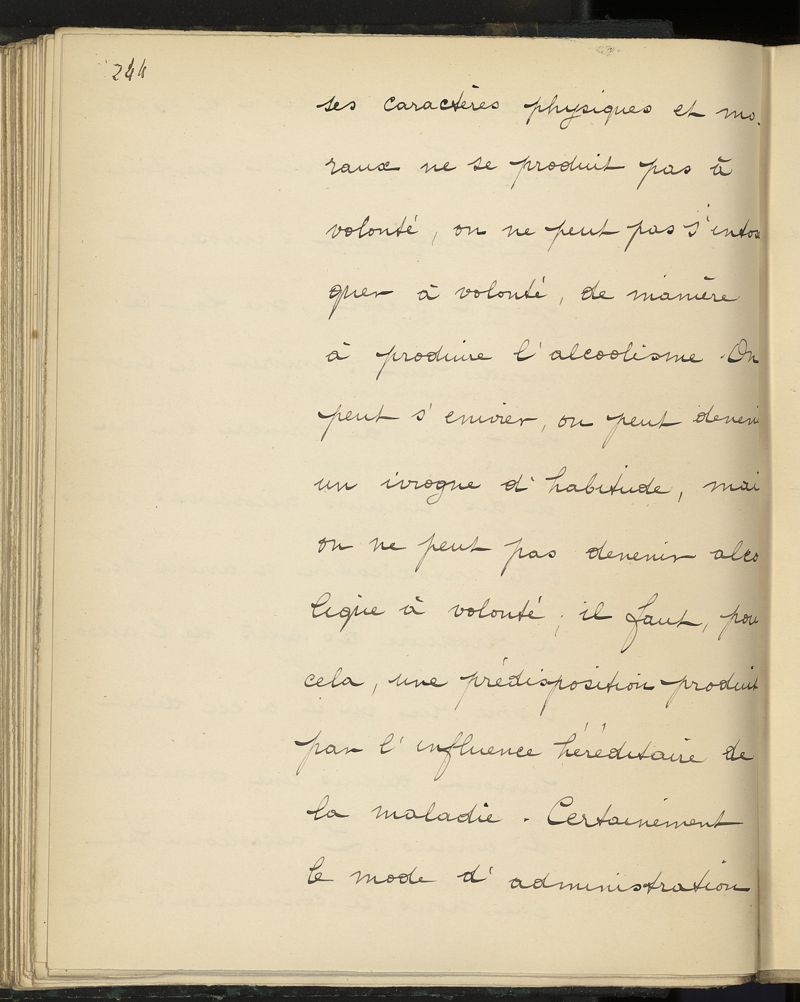 244
ses caractères physiques et mo-
raux ne se produit pas à
volonté, on ne peut pas s'intoxi
quer à volonté, de manière
à produire l'alcoolisme. On
peut s'enivrer, on peut deveni
un ivrogne d'habitude, mai
on ne peut pas devenir alco
lique à volonté; il faut, pou
cela, une prédisposition produit
par l'influence héréditaire de
la maladie. Certainement
le mode d'administration